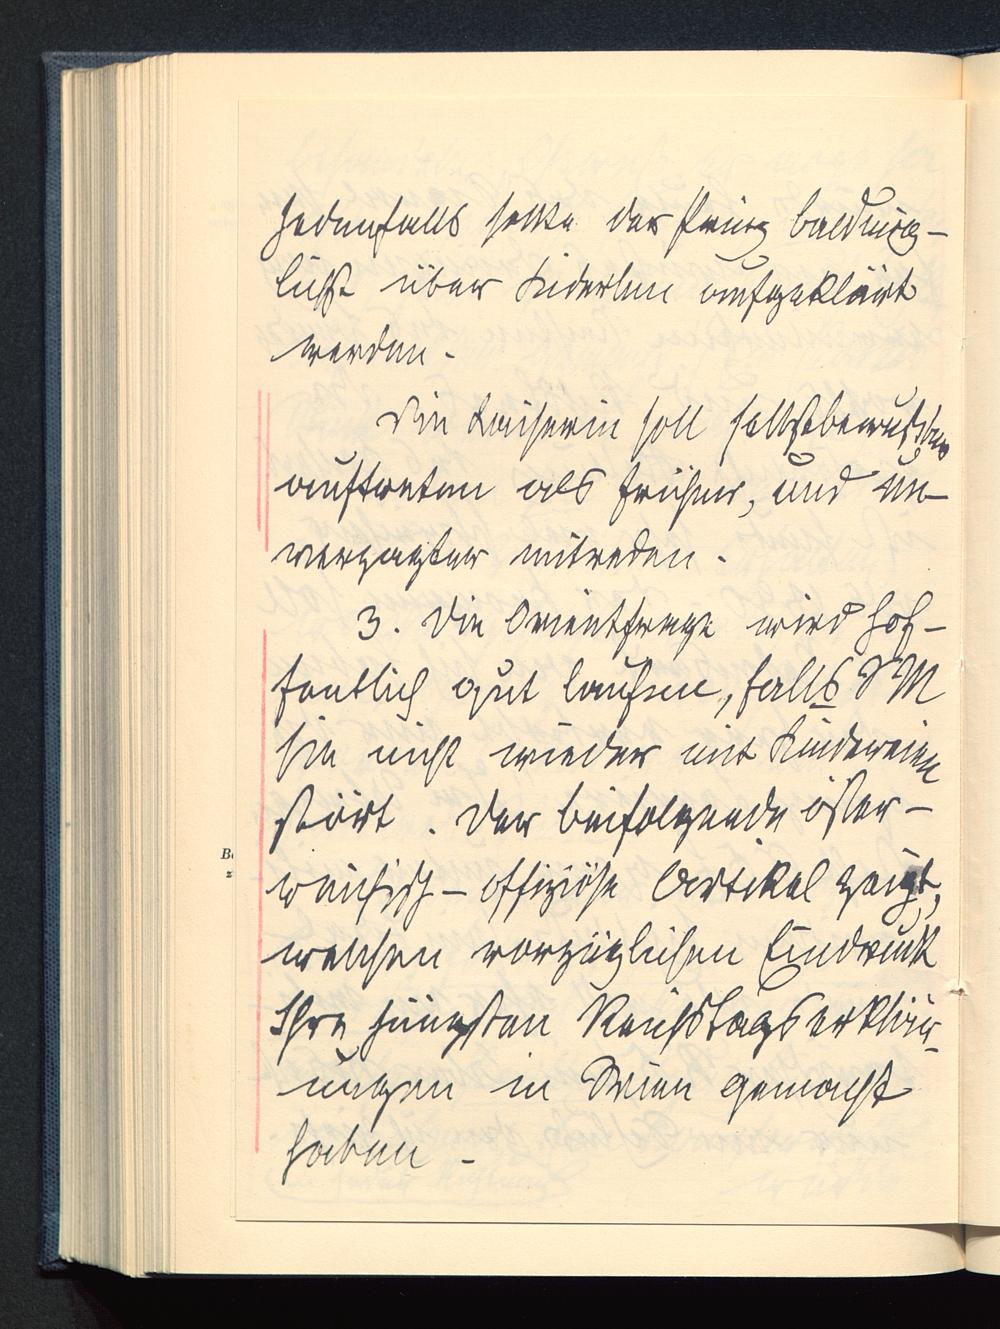 Jedenfalls sollte der Prinz baldmög-
lichst über Kiderlen aufgeklärt
werden.
Die Kaiserin soll selbstbewußter
auftreten als früher, und un-
verzagter mitreden.
3. Die Orientfrage wird hof-
fentlich gut laufen, falls SM
sie nicht wieder mit Kindereien
stört. Der beifolgende öster-
reichisch-offiziöse Artikel zeigt,
welchen vorzüglichen Eindruck
Ihre jüngsten Reichstagserklär-
ungen in Wien gemacht
haben -